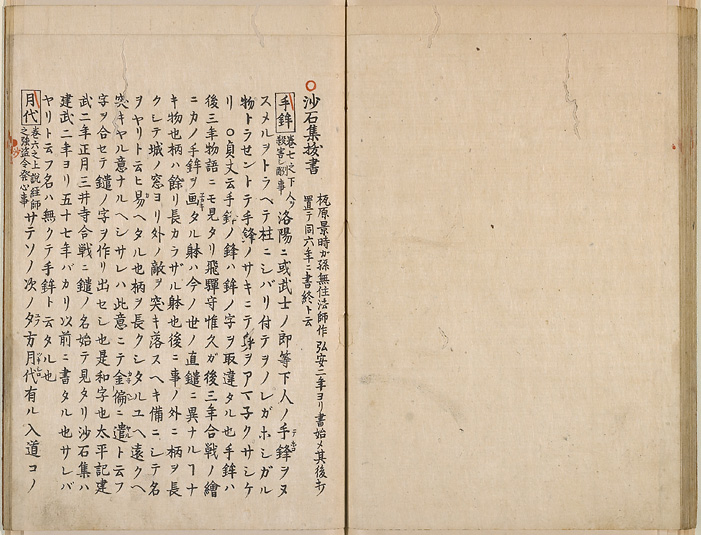 沙石集抜書
梶原景時が孫無住法師作 弘安二年ヨリ書始メ其後
置テ同六年ニ書終ト云
手鉾 巻七之下人ヲ殺害シ酬事 洛陽ニ或武士ノ郎等下人ノ手鋒ヲヌ
スメルヲトラヘテ柱ニシバリ付テヲノレガホシガル
物トラセントテ手鋒ノサキニテ身ヲアマ子クサシケ
リ ○貞丈云手鋒ノ鋒ハ鉾ノ字ヲ取違タル也手鉾ハ
後三年物語ニモ見タリ飛騨守惟久ガ後三年合戦ノ繪
ニカノ手鉾ヲ画タル躰ハ今ノ世ノ直鑓ニ異ナルヿナ
キ物也柄ハ餘リ長カラザル躰也後ニ事ノ外ニ柄ヲ長
クシテ城ノ窓ヨリ外ノ敵ヲ突キ落スヘキ備ニシテ名
ヲヤリト云ヒ易ヘタル也柄ヲ長クシタルユヘ遠クヘ
突キヤル意ナルヘシサレハ此意ニテ金偏ニ遣ト云フ
字ヲ合セテ鑓ノ字ヲ作リ出セシ也是和字也太平記建
武二年正月三井寺合戦ニ鑓ノ名始テ見タリ沙石集ハ
建武二年ヨリ五十七年バカリ以前ニ書タル也サレバ
ヤリト云フ名ハ無クテ手鉾ト云タル也
月代 巻六之上説経師之強盗令発心事 サテソノ次ノ夕方月代有ル入道コノ